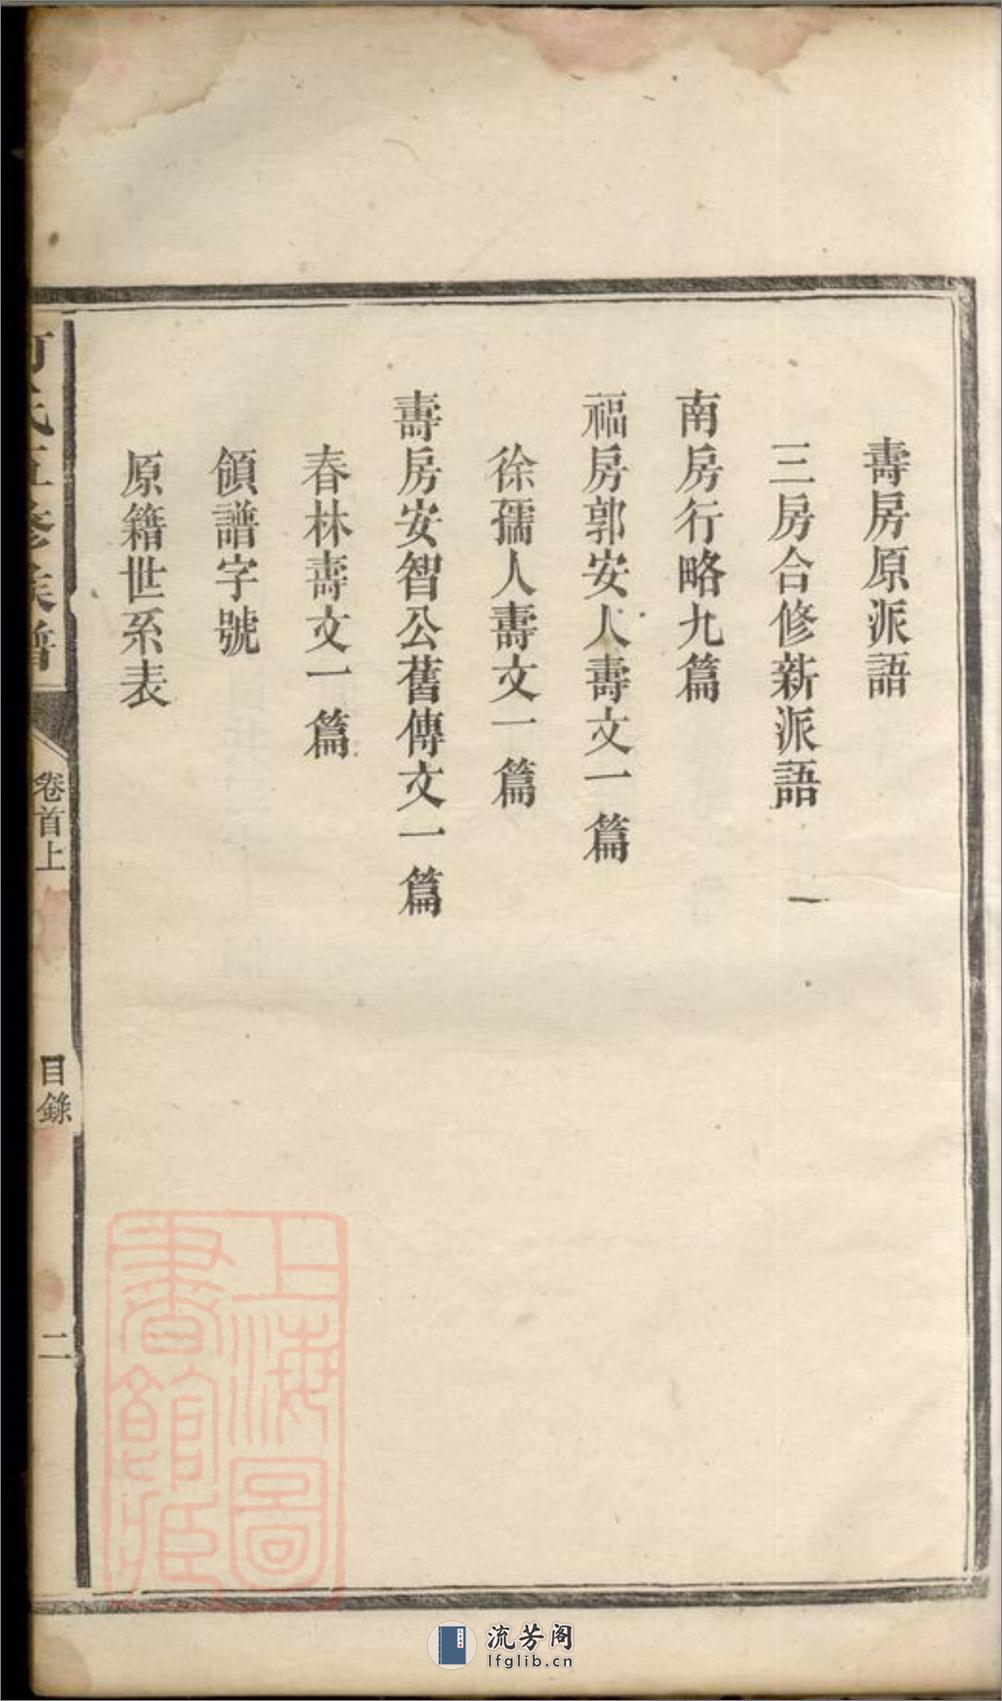 壽房原派語
三房合修新派語
南房行略九篇
福房郭安人壽文一篇
徐孺人壽文一篇
壽房安智公舊傳文一篇
春林壽文一篇
領譜字號
原籍世系表
氏五修族譜
卷首上
目錄
二
上海圖書館藏
流芳阁
lfglib.cn